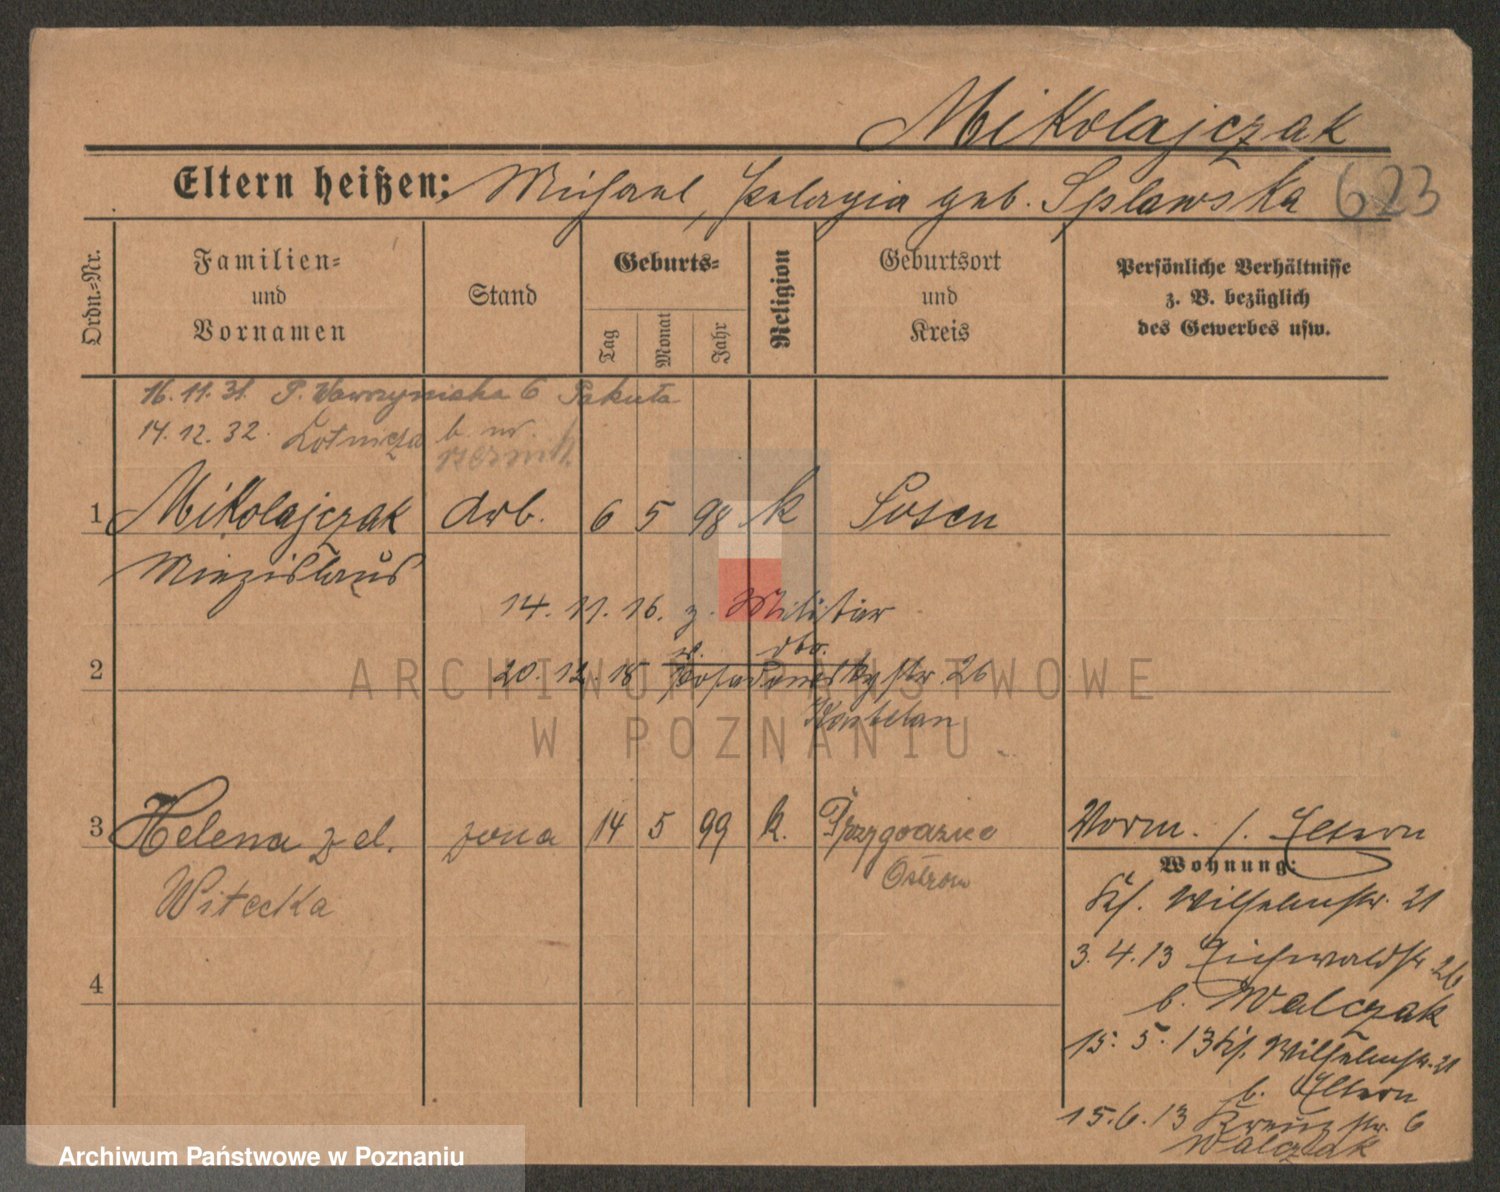 Mikolajczak
Eltern heißen: Michael, Pelagia geb. Splawska 623
Ordn.-Nr.
Familien- und Vornamen
Stand
Geburts-
Tag
Monat
Jahr
Religion
Geburtsort und Kreis
Persönliche Verhältnisse
z. B. bezüglich
des Gewerbes usw.
16. 11. 31. P. Wawrzyniaka 6 Pakuła
14. 12. 32. Lotnicza b. nr.
1 Mikolajczak Arb. 6 5 98 k Posen
Miezislaus
14. 11. 16. z. Militär
20. 12. 18 Posadowskystr. 26
2
Kastelan
3 Helena z d. żona 14 5 99 k. Przygodzice
Witecka Ostrow
4
Vorm. s. Eltern
Wohnung:
Kl. Wilhelmstr. 21
3. 4. 13 Eichwaldstr 26
b. Walczak
15. 5. 13 Kl. Wilhelmstr. 21
b. Eltern
15. 6. 13 Kreuzstr. 6
Walczak
ARCHIWUM PAŃSTWOWE
W POZNANIU
Archiwum Państwowe w Poznaniu